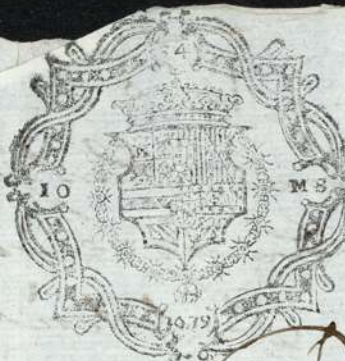 4
10 MS
1679